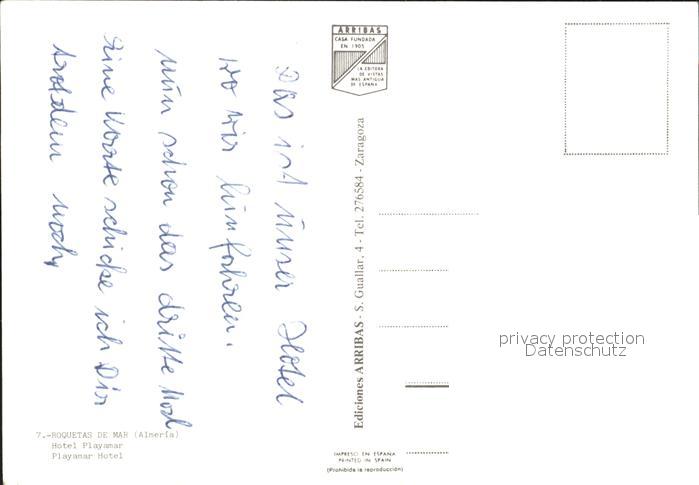 Das ist unser Hotel
wo wir hinfahren.
nun schon das dritte Mal
Eine Karte schicke ich Dir
trotzdem noch,
7.-ROQUETAS DE MAR (Almería)
Hotel Playamar
Playamar Hotel
ARRIBAS
CASA FUNDADA
EN 1905
LA EDITORA
DE VISTAS
MAS ANTIGUA
DE ESPAÑA
Ediciones ARRIBAS - S. Guallar, 4 - Tel. 276584 - Zaragoza
IMPRESO EN ESPAÑA
PRINTED IN SPAIN
(Prohibida la reproducción)
privacy protection
Datenschutz